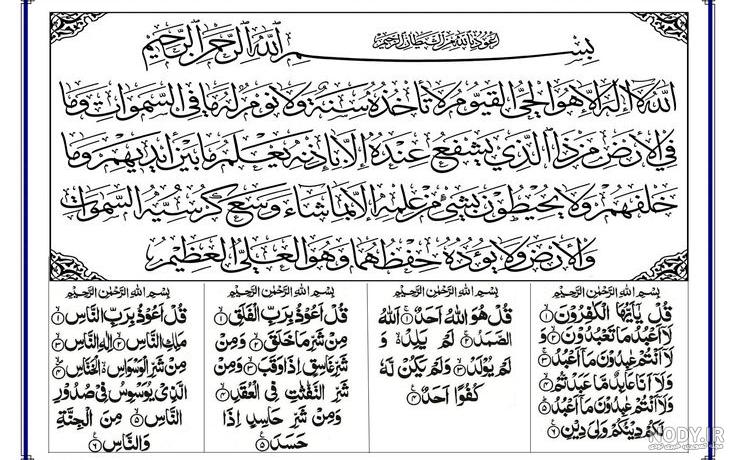 اعوذ بالله من الشيطان الرجيم
بسم الله الرحمن الرحيم
الله لا إله إلا هو الحي القيوم لا تأخذه سنة ولا نوم له ما في السموات وما
في الأرض من ذا الذي يشفع عنده إلا بإذنه يعلم ما بين أيديهم وما
خلفهم ولا يحيطون بشيء من علمه إلا بما شاء وسع كرسيه السموات
والأرض ولا يؤده حفظهما وهو العلي العظيم
بسم الله الرحمن الرحيم
قل يأيها الكفرون ١
لا أعبد ما تعبدون ٢ و
لا أنتم عبدون ما أعبد ٣
ولا أنا عابد ما عبدتم ٤
ولا أنتم عبدون ما أعبد ٥
لكم دينكم ولى دين ٦
بسم الله الرحمن الرحيم
قل هو الله أحد ١ الله
الصمد ٢ لم يلد و
لم يولد ٣ ولم يكن له
كفوا أحد ٤
بسم الله الرحمن الرحيم
قل أعوذ برب الفلق ١
من شر ما خلق ٢ ومن
شر غاسق إذا وقب ٣ ومن
شر النفثت في العقد ٤
ومن شر حاسد إذا
حسد ٥
بسم الله الرحمن الرحيم
قل أعوذ برب الناس ١
ملك الناس ٢ إله الناس ٣
من شر الوسواس الخناس ٤
الذي يوسوس في صدور
الناس ٥ من الجنة
والناس ٦
NODY.IR